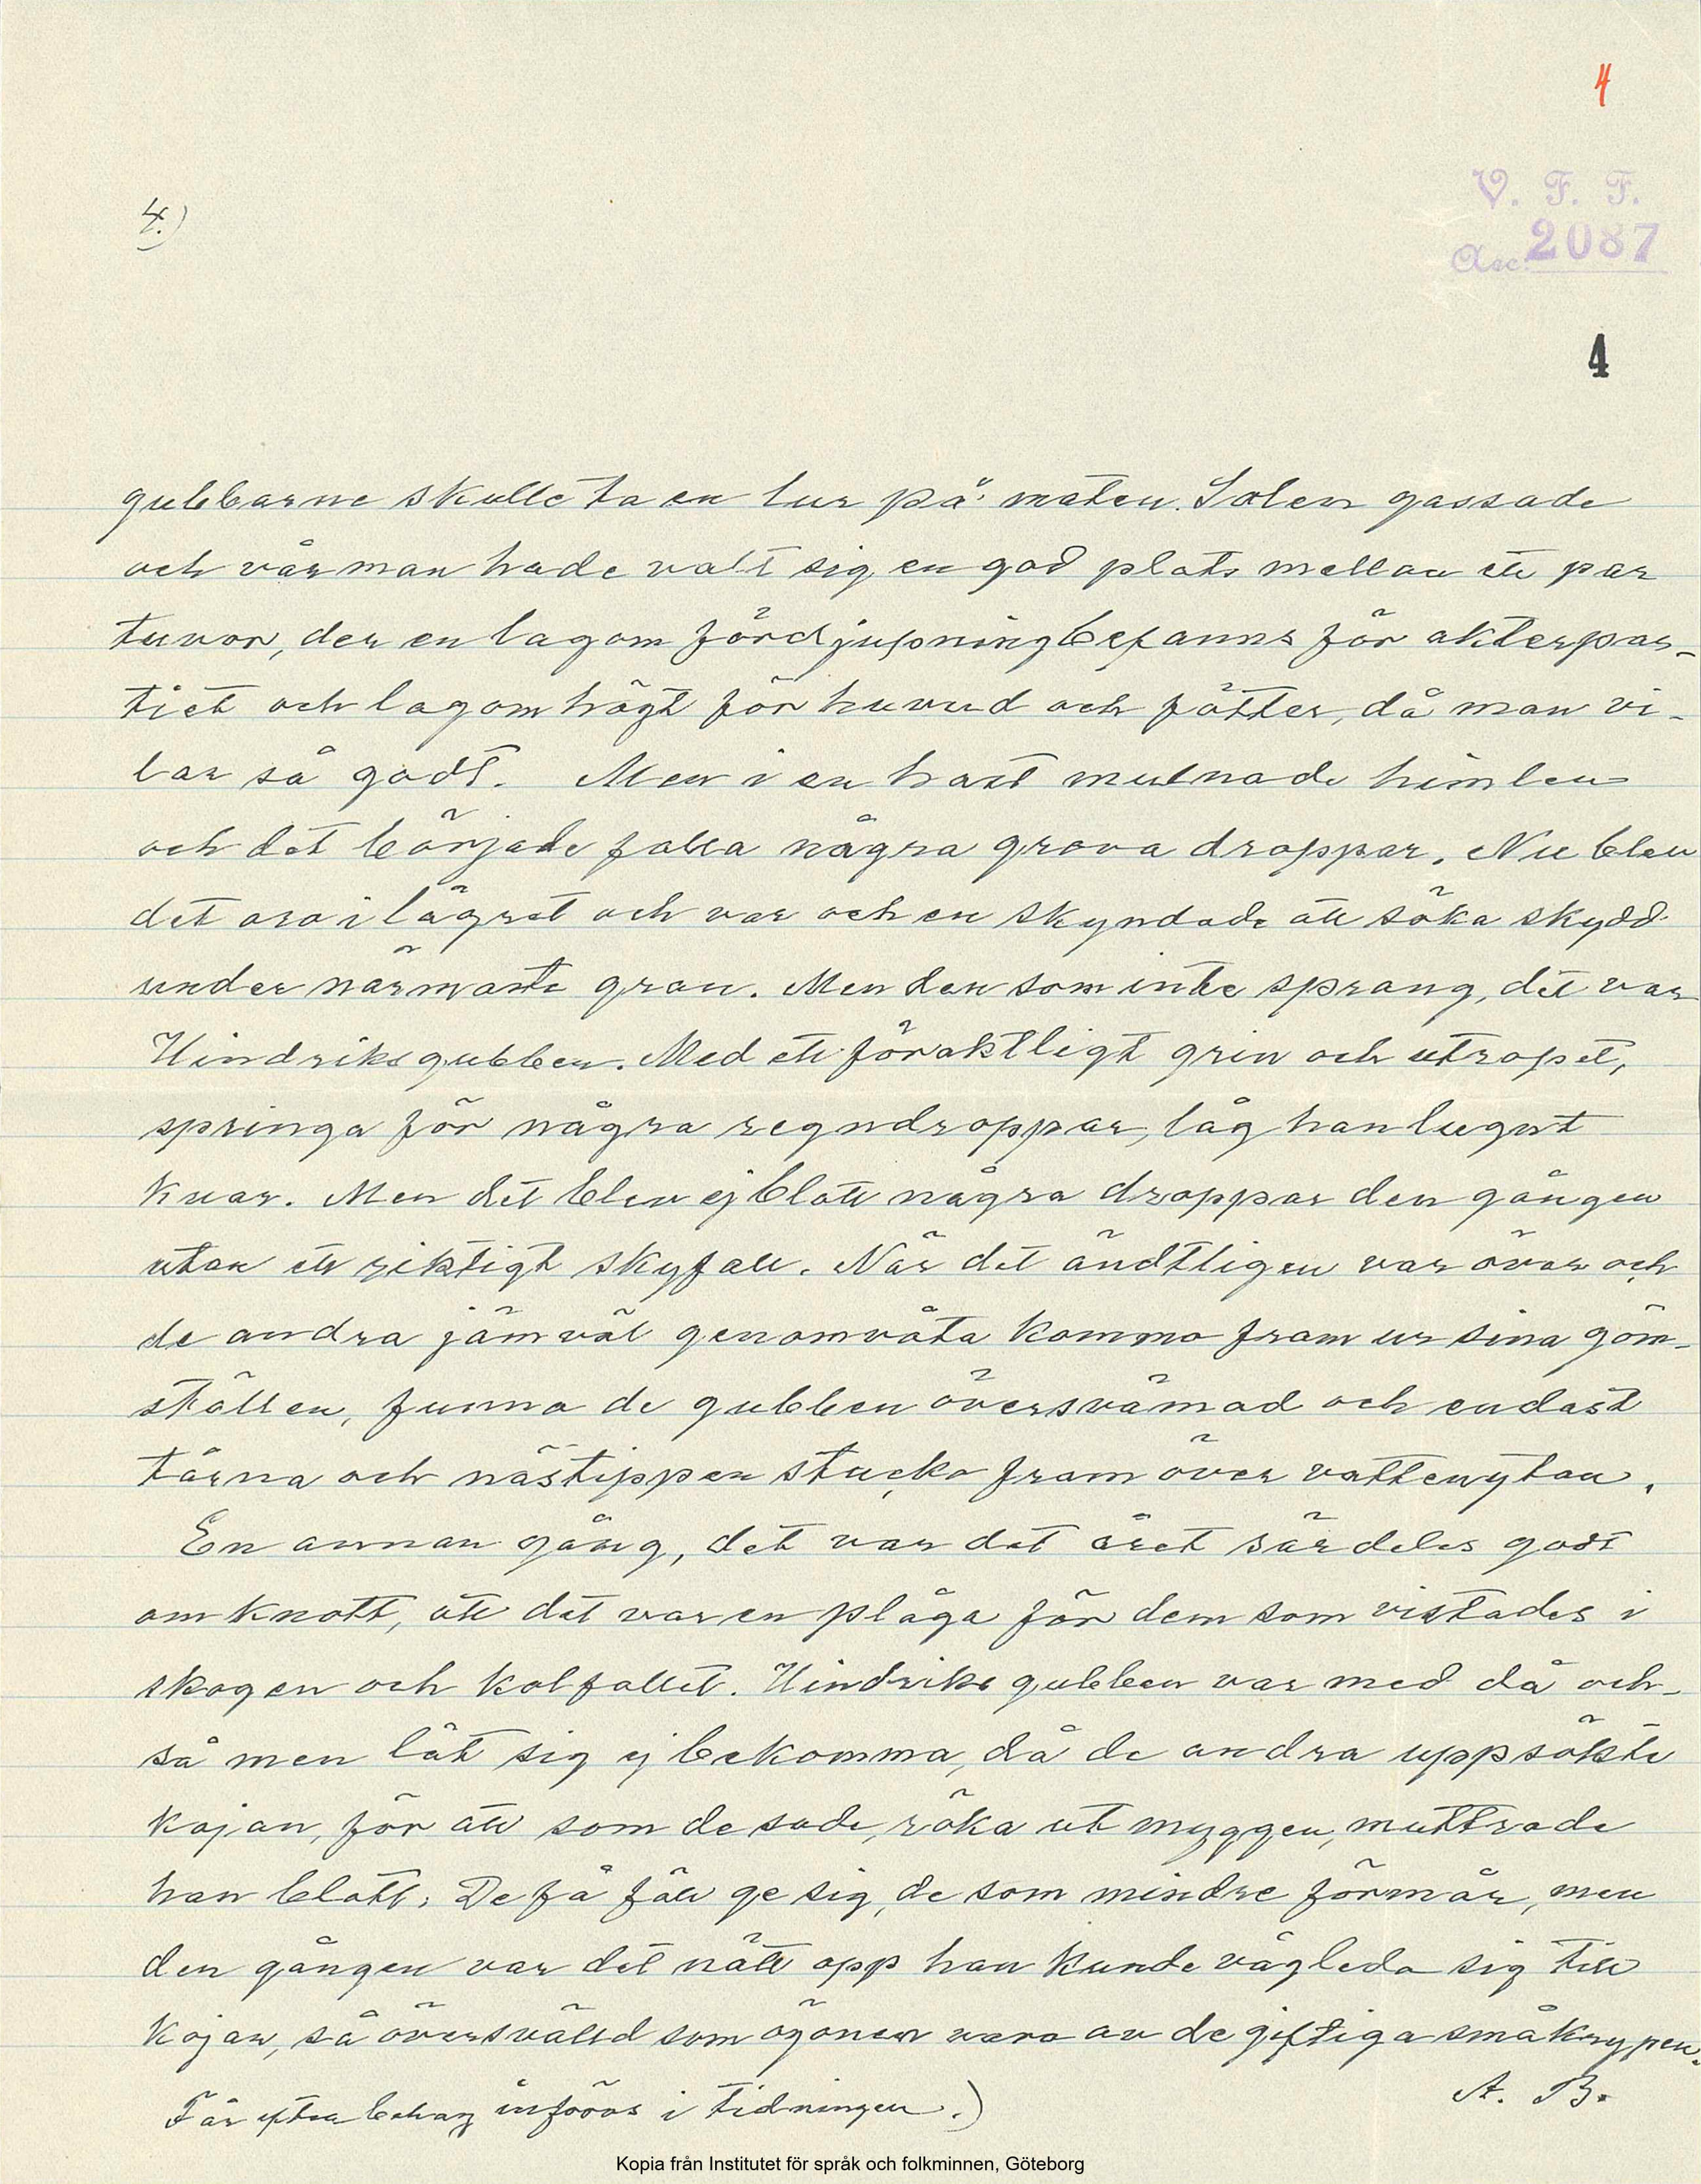 4
4.)
V. F. F.
Acc. 2087
4
gubbarne skulle ta en lur på maten. Solen gassade
och vår man hade valt sig en god plats mellan ett par
tuvor, der en lagom fördjupning befanns för akterpar-
tiet och lagom högt för huvud och fötter, då man vi-
lar så godt. Men i en hast mulnade himlen
och det började falla några grova droppar. Nu blev
det oro i lägret och var och en skyndade att söka skydd
under närmaste gran. Men den som inte sprang, det var
Hindriksgubben. Med ett föraktligt grin och utropet,
springa för några regndroppar, låg han lugnt
kvar. Men det blev ej blott några droppar den gången
utan ett riktigt skyfall. När det ändtligen var över och
de andra jämväl genomvåta kommo fram ur sina göm-
ställen, funno de gubben översvämad och endast
tårna och nästippen stucko fram över vattenytan.
En annan gång, det var det året särdeles godt
om knott, att det var en plåga för dem som vistades i
skogen och kolfallet. Hindriksgubben var med då ock-
så men lät sig ej bekomma, då de andra uppsökte
kojan, för att som de sade, röka ut myggen, muttrade
han blott: De få fäll ge sig, de som mindre förmår, men
den gången var det nätt opp han kunde vägleda sig till
kojan, så översvälld som ögonen voro av de giftiga småkrypen.
A. B.
Får efter behag införas i tidningen.)
Kopia från Institutet för språk och folkminnen, Göteborg